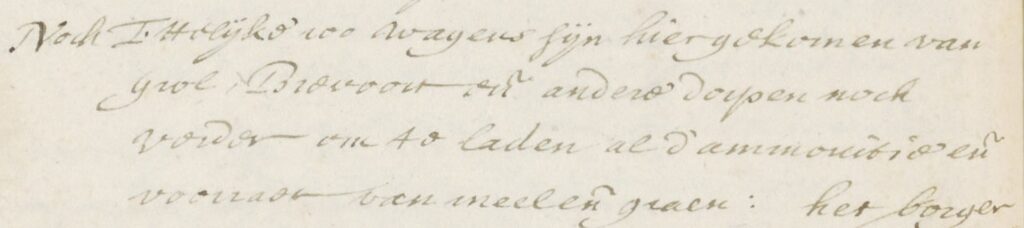 Noch Ettelijke 100 wagens sijn hier gekomen van
grol, Brevoort en̄ andere dorpen noch
verder om te laden al d'ammonitie en̄
voorraet van meel en̄ graen: het borger